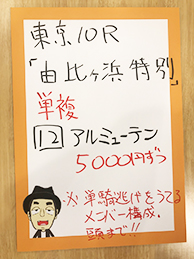 東京10R
「由比ヶ浜特別」
単複
12 アルミューテン
5000円ずつ
※単騎逃げをうてる
メンバー構成。
頭まで!!